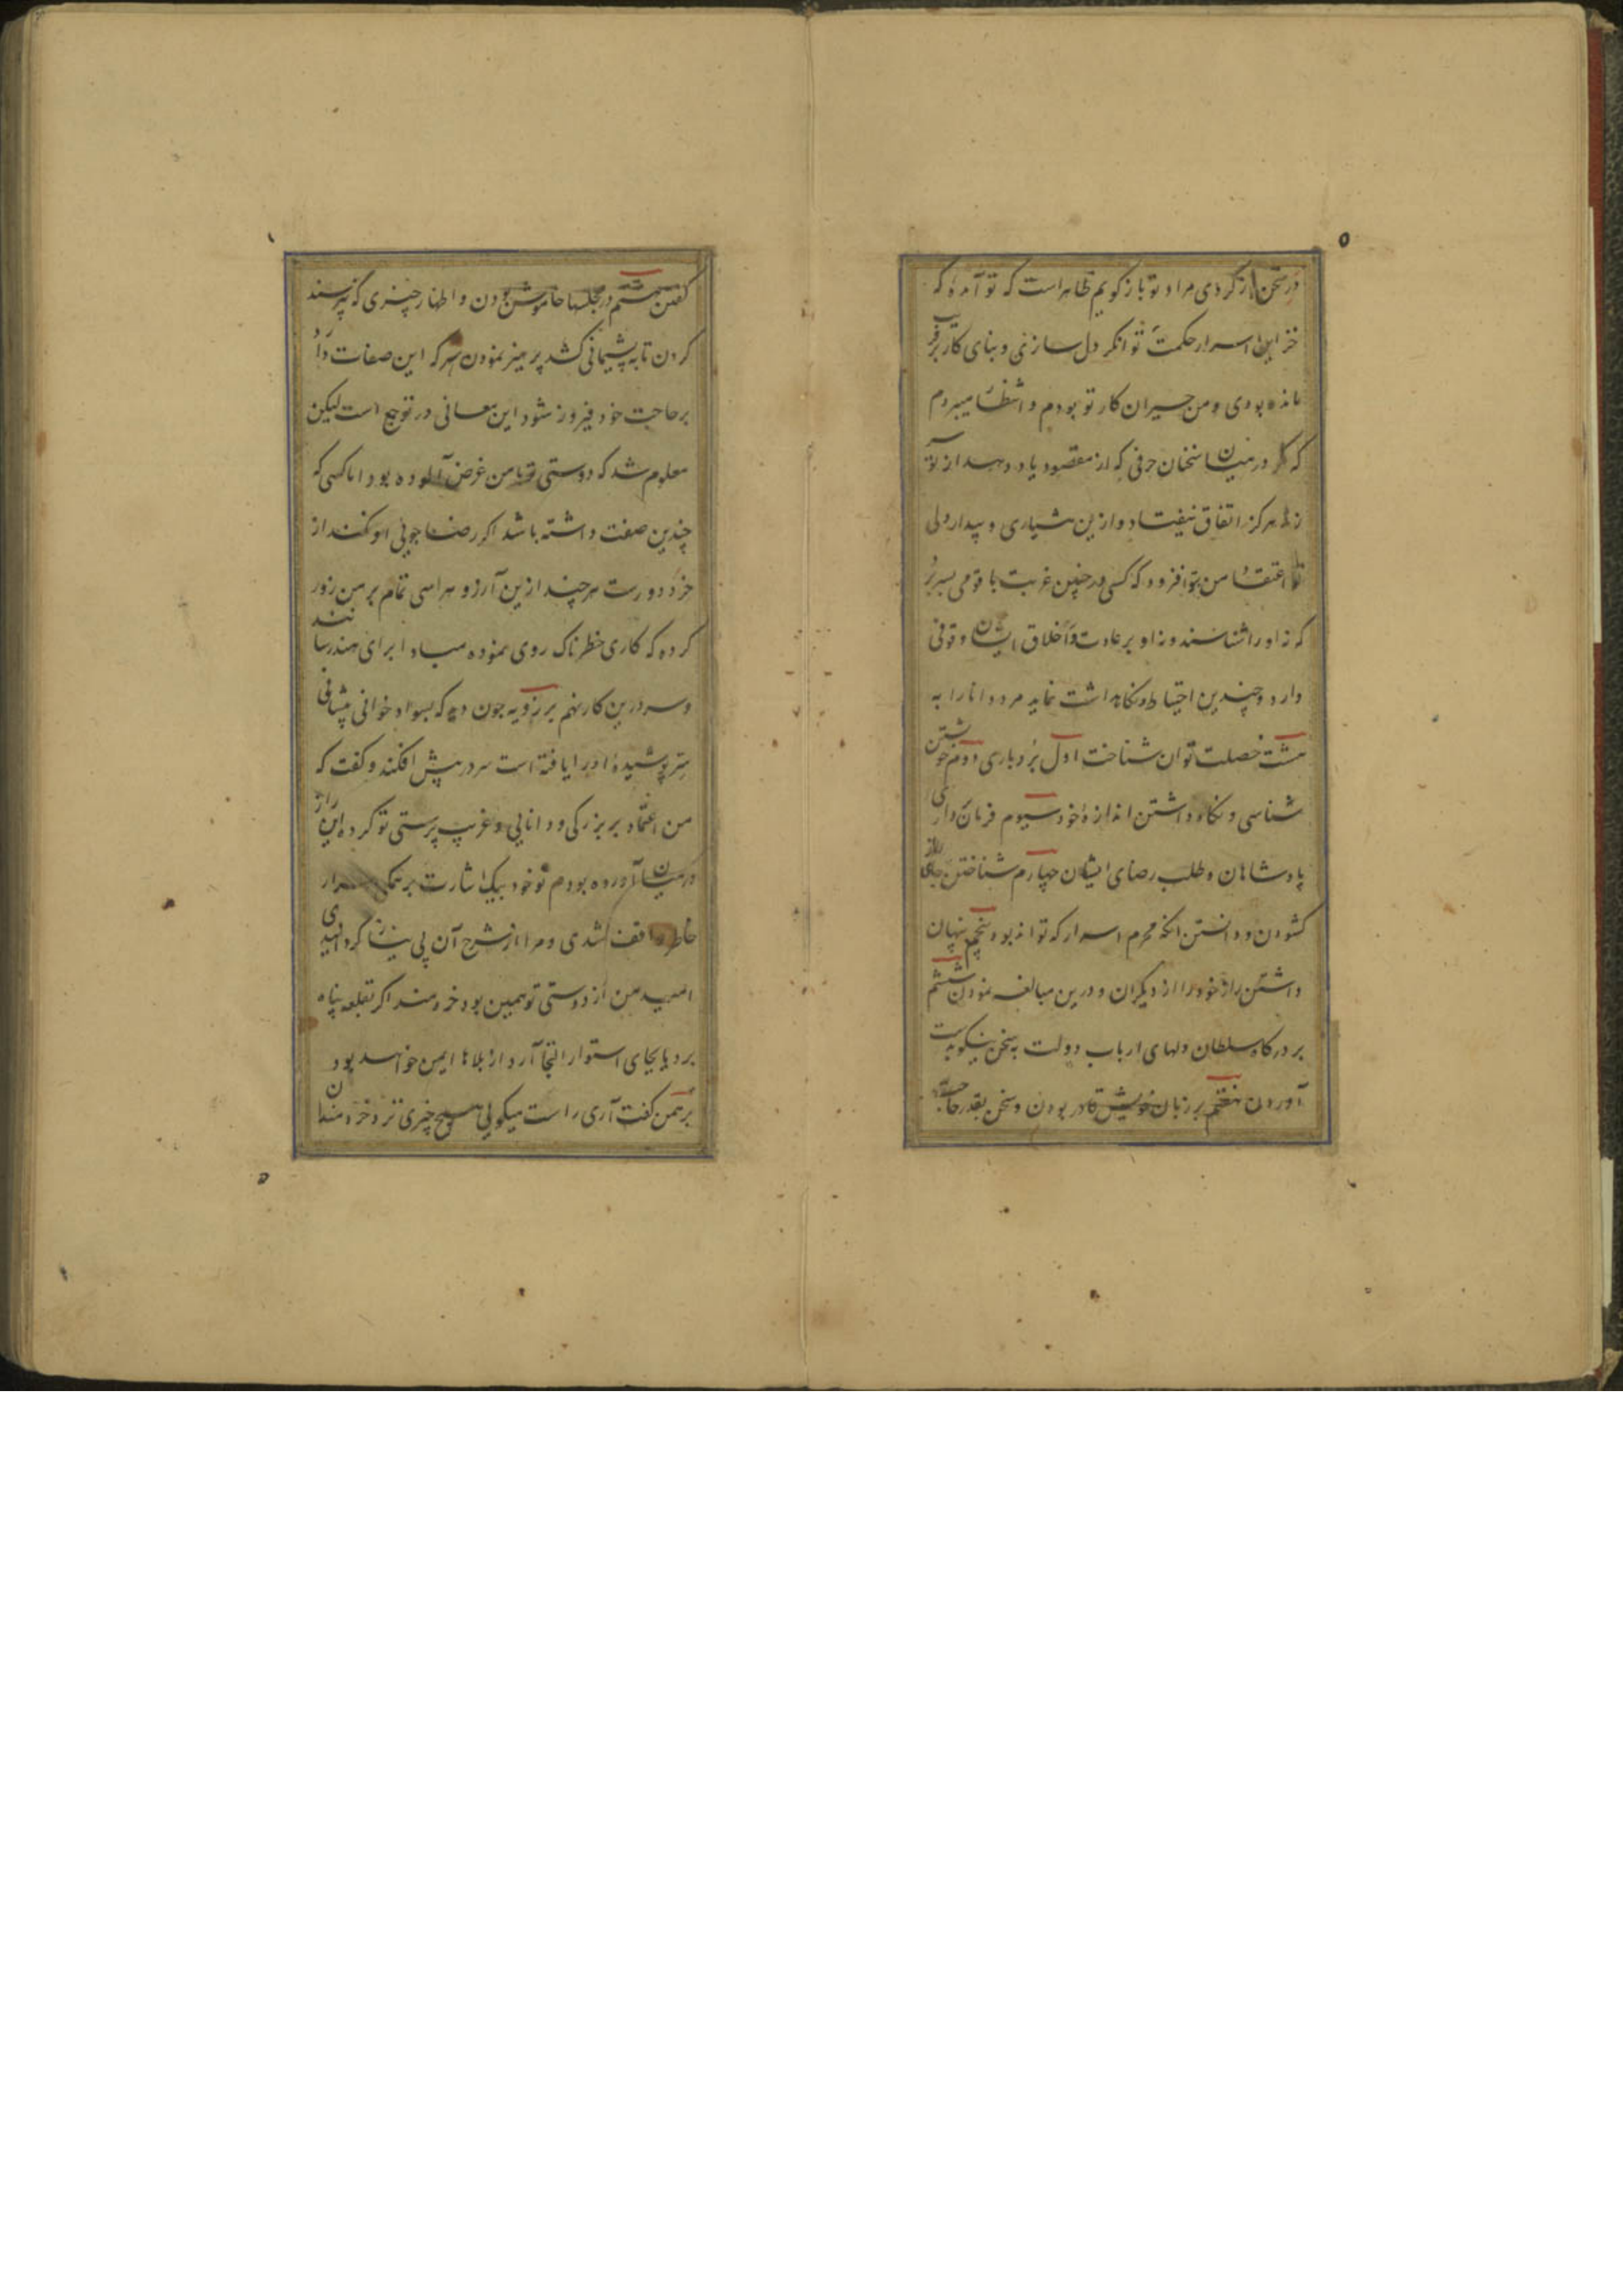 در سخن باز کردی مراد تو باز گویم ظاهر است که تو آمدهٔ که
خزاین اسرار حکمت توانگر دل سازنی و بنای کار بر فریب
مانده بودی و من حیران کار تو بودم و انتظار میبردم
که در میان سخنان حرفی که از مقصود یاد دهد از تو سر
زند هرگز اتفاق نیفتاد و ازین هشیاری و بیداردلی
تو اعتقاد من بتو افزود که کسی در چنین غربت با قومی بسر برد
که نه او را شناسند و نه او بر عادت و اخلاق ایشان وقوفی
دارد و چندین احتیاط و نگاهداشت نماید مرد دانا را به
هشت خصلت توان شناخت اول بردباری دوم خویشتن
شناسی و نگاه داشتن اندازهٔ خود سیوم فرمان‌داری
پادشاهان و طلب رضای ایشان چهارم شناختن جای راز
گشودن و دانستن آنکه محرم اسرار که تواند بود پنجم پنهان
داشتن راز خود را از دیگران و درین مبالغه نمودن ششم
بر درگاه سلطان دلهای ارباب دولت به سخن نیکو بدست
آوردن هفتم بر زبان خویش قادر بودن و سخن بقدر حاجت
گفتن هشتم در مجلسها خاموش بودن و اظهار چیزی که نپرسند
کردن تا به پشیمانی کشد پرهیز نمودن هر که این صفات دارد
بر حاجت خود فیروز شود این معانی در تو جمع است لیکن
معلوم شد که دوستی تو با من غرض آلوده بود اما کسی که
چندین صفت داشته باشد اگر رضا جویی او نکنند از
خرد دورست هر چند ازین آرزو هراسی تمام بر من زور
کرده که کاری خطرناک روی نموده مبادا برای هند رسانند
و سر درین کار نهم برزویه چون دید که بسواد خوانی پیشانی
سر پوشیدهٔ او را یافته است سر در پیش افکند و گفت که
من اعتماد بر بزرگی و دانایی و غریب پرستی تو کرده این راز
در میان آورده بودم تو خود بیک اشارت بر همگی اسرار
خاطر واقف شدی و مرا از شرح آن بی نیاز گردانیدی
امید من از دوستی تو همین بود خردمند اگر بقلعه پناه
برد یا بجای استوار التجا آرد از بلاها ایمن خواهد بود
برهمن گفت آری راست میگویی هیچ چیزی نزد خردمندان